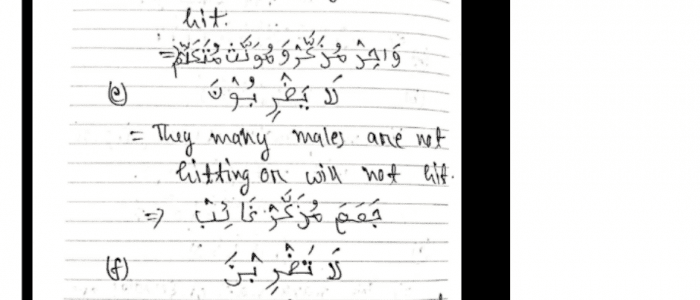 hit.
= وَاحِدْ مُذَكَّرْ وَ مُوَنَّثْ مُتَكَلِّمْ
(e) لَا يَضْرِبُوْنَ
= They many males are not
hitting or will not hit.
=> جَمَعَ مُذَكَّرْ غَائِبْ
(f) لَا تَضْرِبْنَ